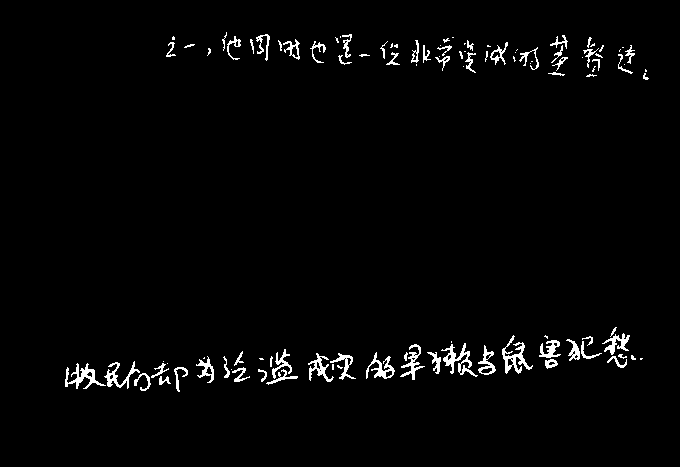 之一，他同时也是一位非常虔诚的基督徒。
牧民们却为泛滥成灾的旱獭与鼠害犯愁.